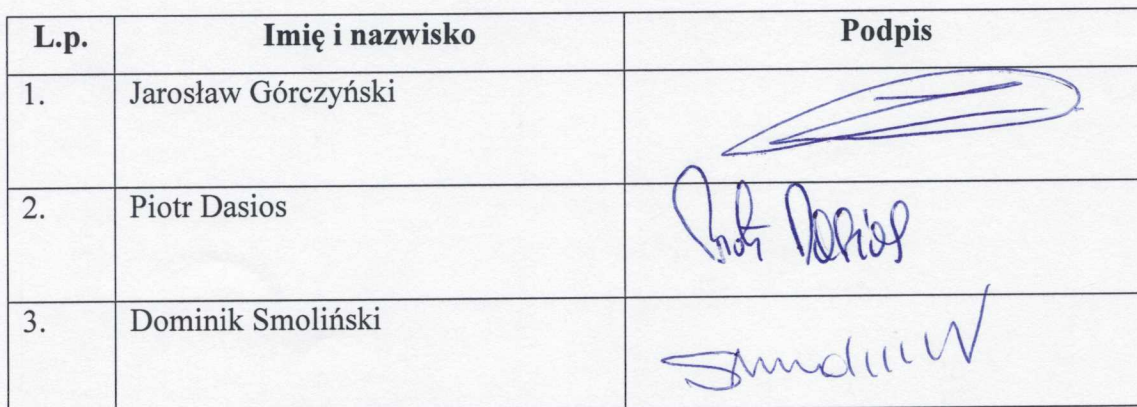 L.p. Imię i nazwisko Podpis
1. Jarosław Górczyński
2. Piotr Dasios Piotr Dasios
3. Dominik Smoliński